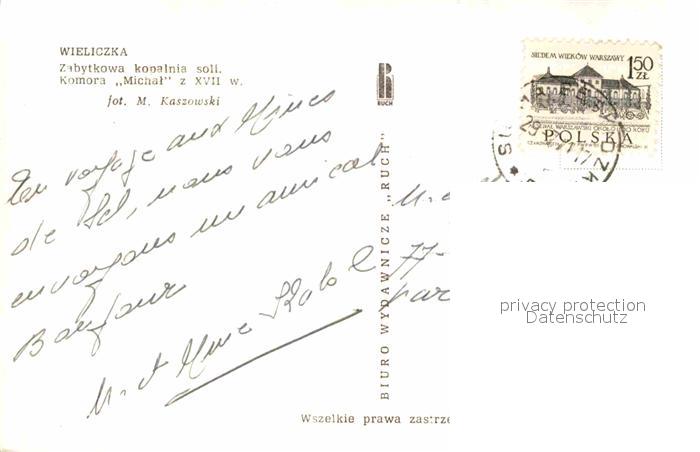 WIELICZKA
Zabytkowa kopalnia soli.
Komora „Michał" z XVII w.
fot. M. Kaszowski
RUCH
SIEDEM WIEKÓW WARSZAWY
1,50
ZŁ
POLSKA
29
En voyage aux Mines
de Sel, nous vous
envoyons un amical
Bonjour
M. et Mme
BIURO WYDAWNICZE „RUCH"
77-
privacy protection
Datenschutz
Wszelkie prawa zastrze